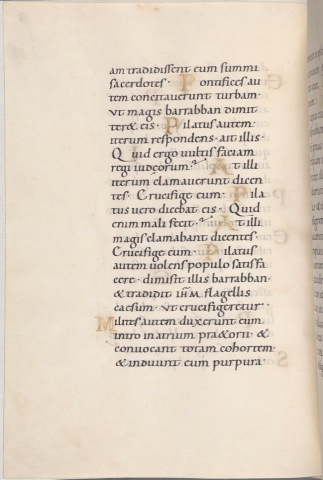 am tradidissent eum summi
sacerdotes · Pontifices au
tem concitaverunt turbam ·
ut magis barrabban dimit
ter& eis · Pilatus autem
iterum respondens · ait illis ·
Quid ergo vultis faciam
regi iudeorum · At illi
iterum clamaverunt dicen
tes · Crucifige eum · Pila
tus vero dicebat eis · Quid
enim mali fecit · At illi
magis clamabant dicentes ·
Crucifige eum · Pilatus
autem volens populo satisfa
cere · dimisit illis barrabban ·
& tradidit ihm flagellis
caesum · ut crucifigeretur ·
Milites autem duxerunt eum
intro in atrium pr&orii · &
convocant totam cohortem ·
& induunt eum purpura ·